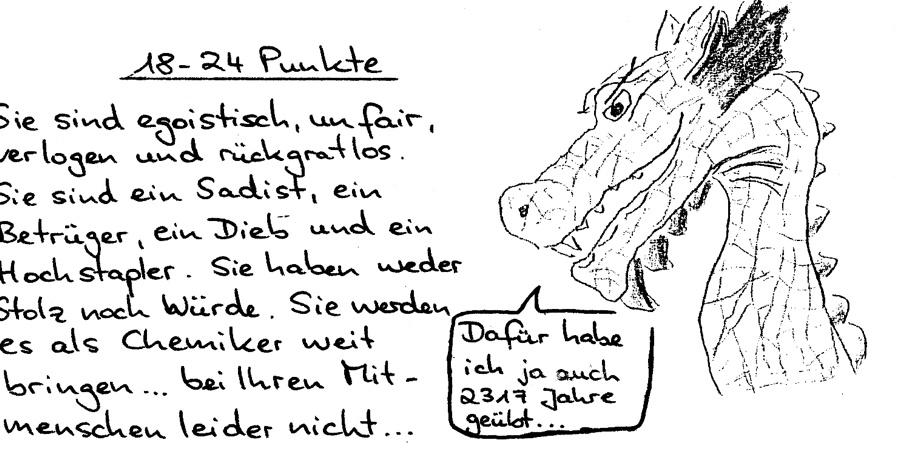 18-24 Punkte
Sie sind egoistisch, unfair,
verlogen und rückgratlos.
Sie sind ein Sadist, ein
Betrüger, ein Dieb und ein
Hochstapler. Sie haben weder
Stolz noch Würde. Sie werden
es als Chemiker weit
bringen... bei Ihren Mit-
menschen leider nicht...
Dafür habe
ich ja auch
2317 Jahre
geübt...